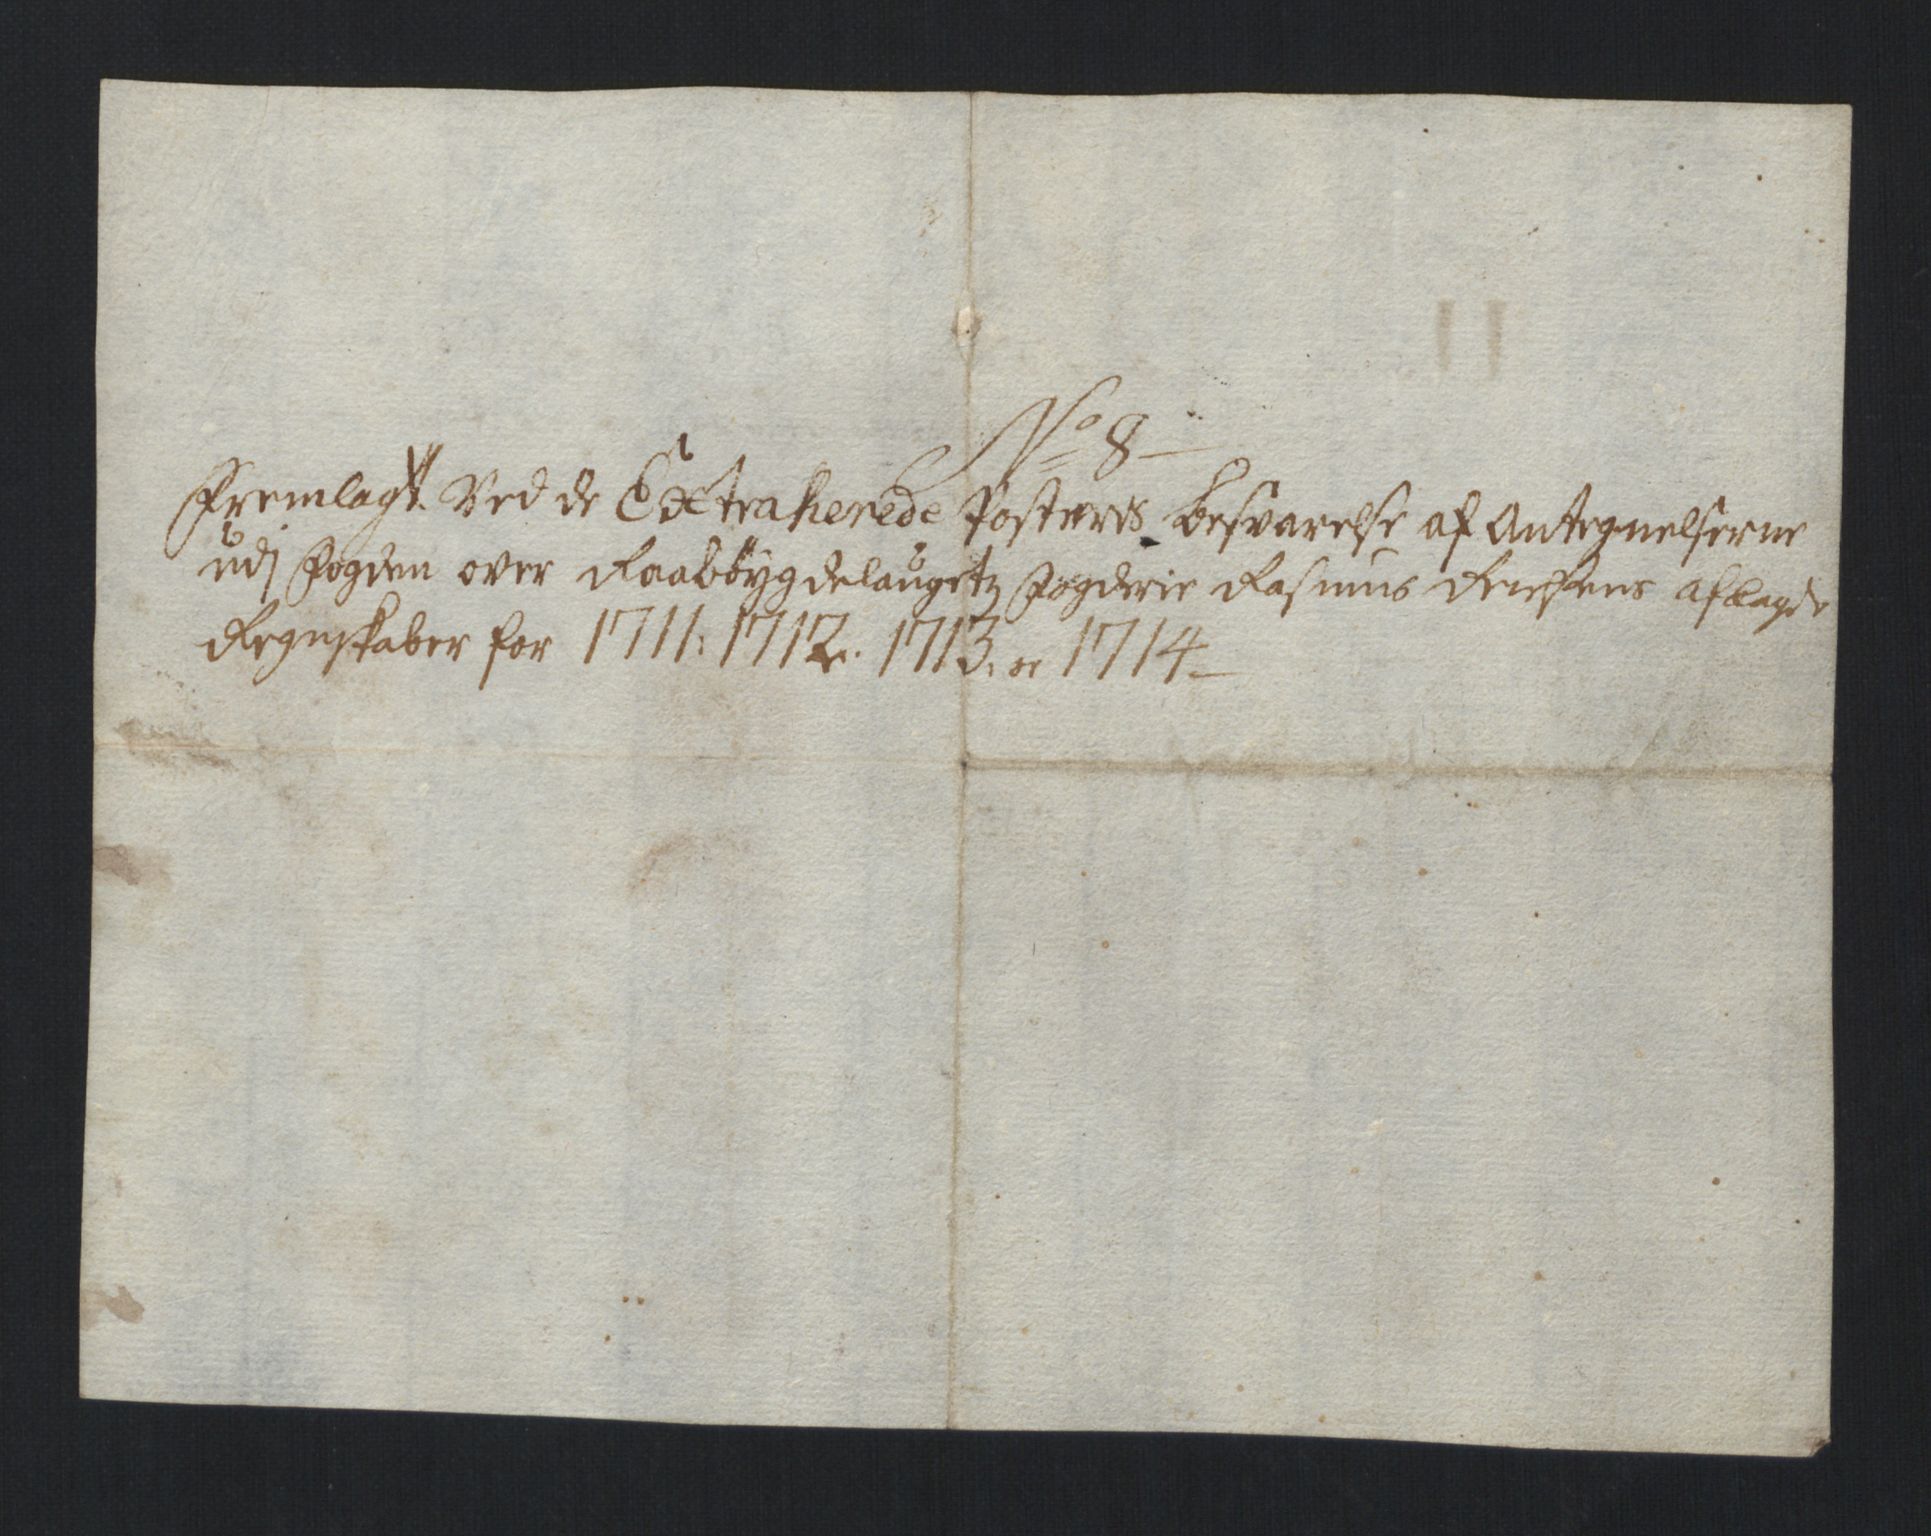 No 8
Fremlagt. Ved de Extraherede Posters besvarelse af Antegnelserne
udj fogden over Raaböygdelaugetz fogderie Rasmus aflagde
Regnskaber for 1711: 1712. 1713. oc 1714